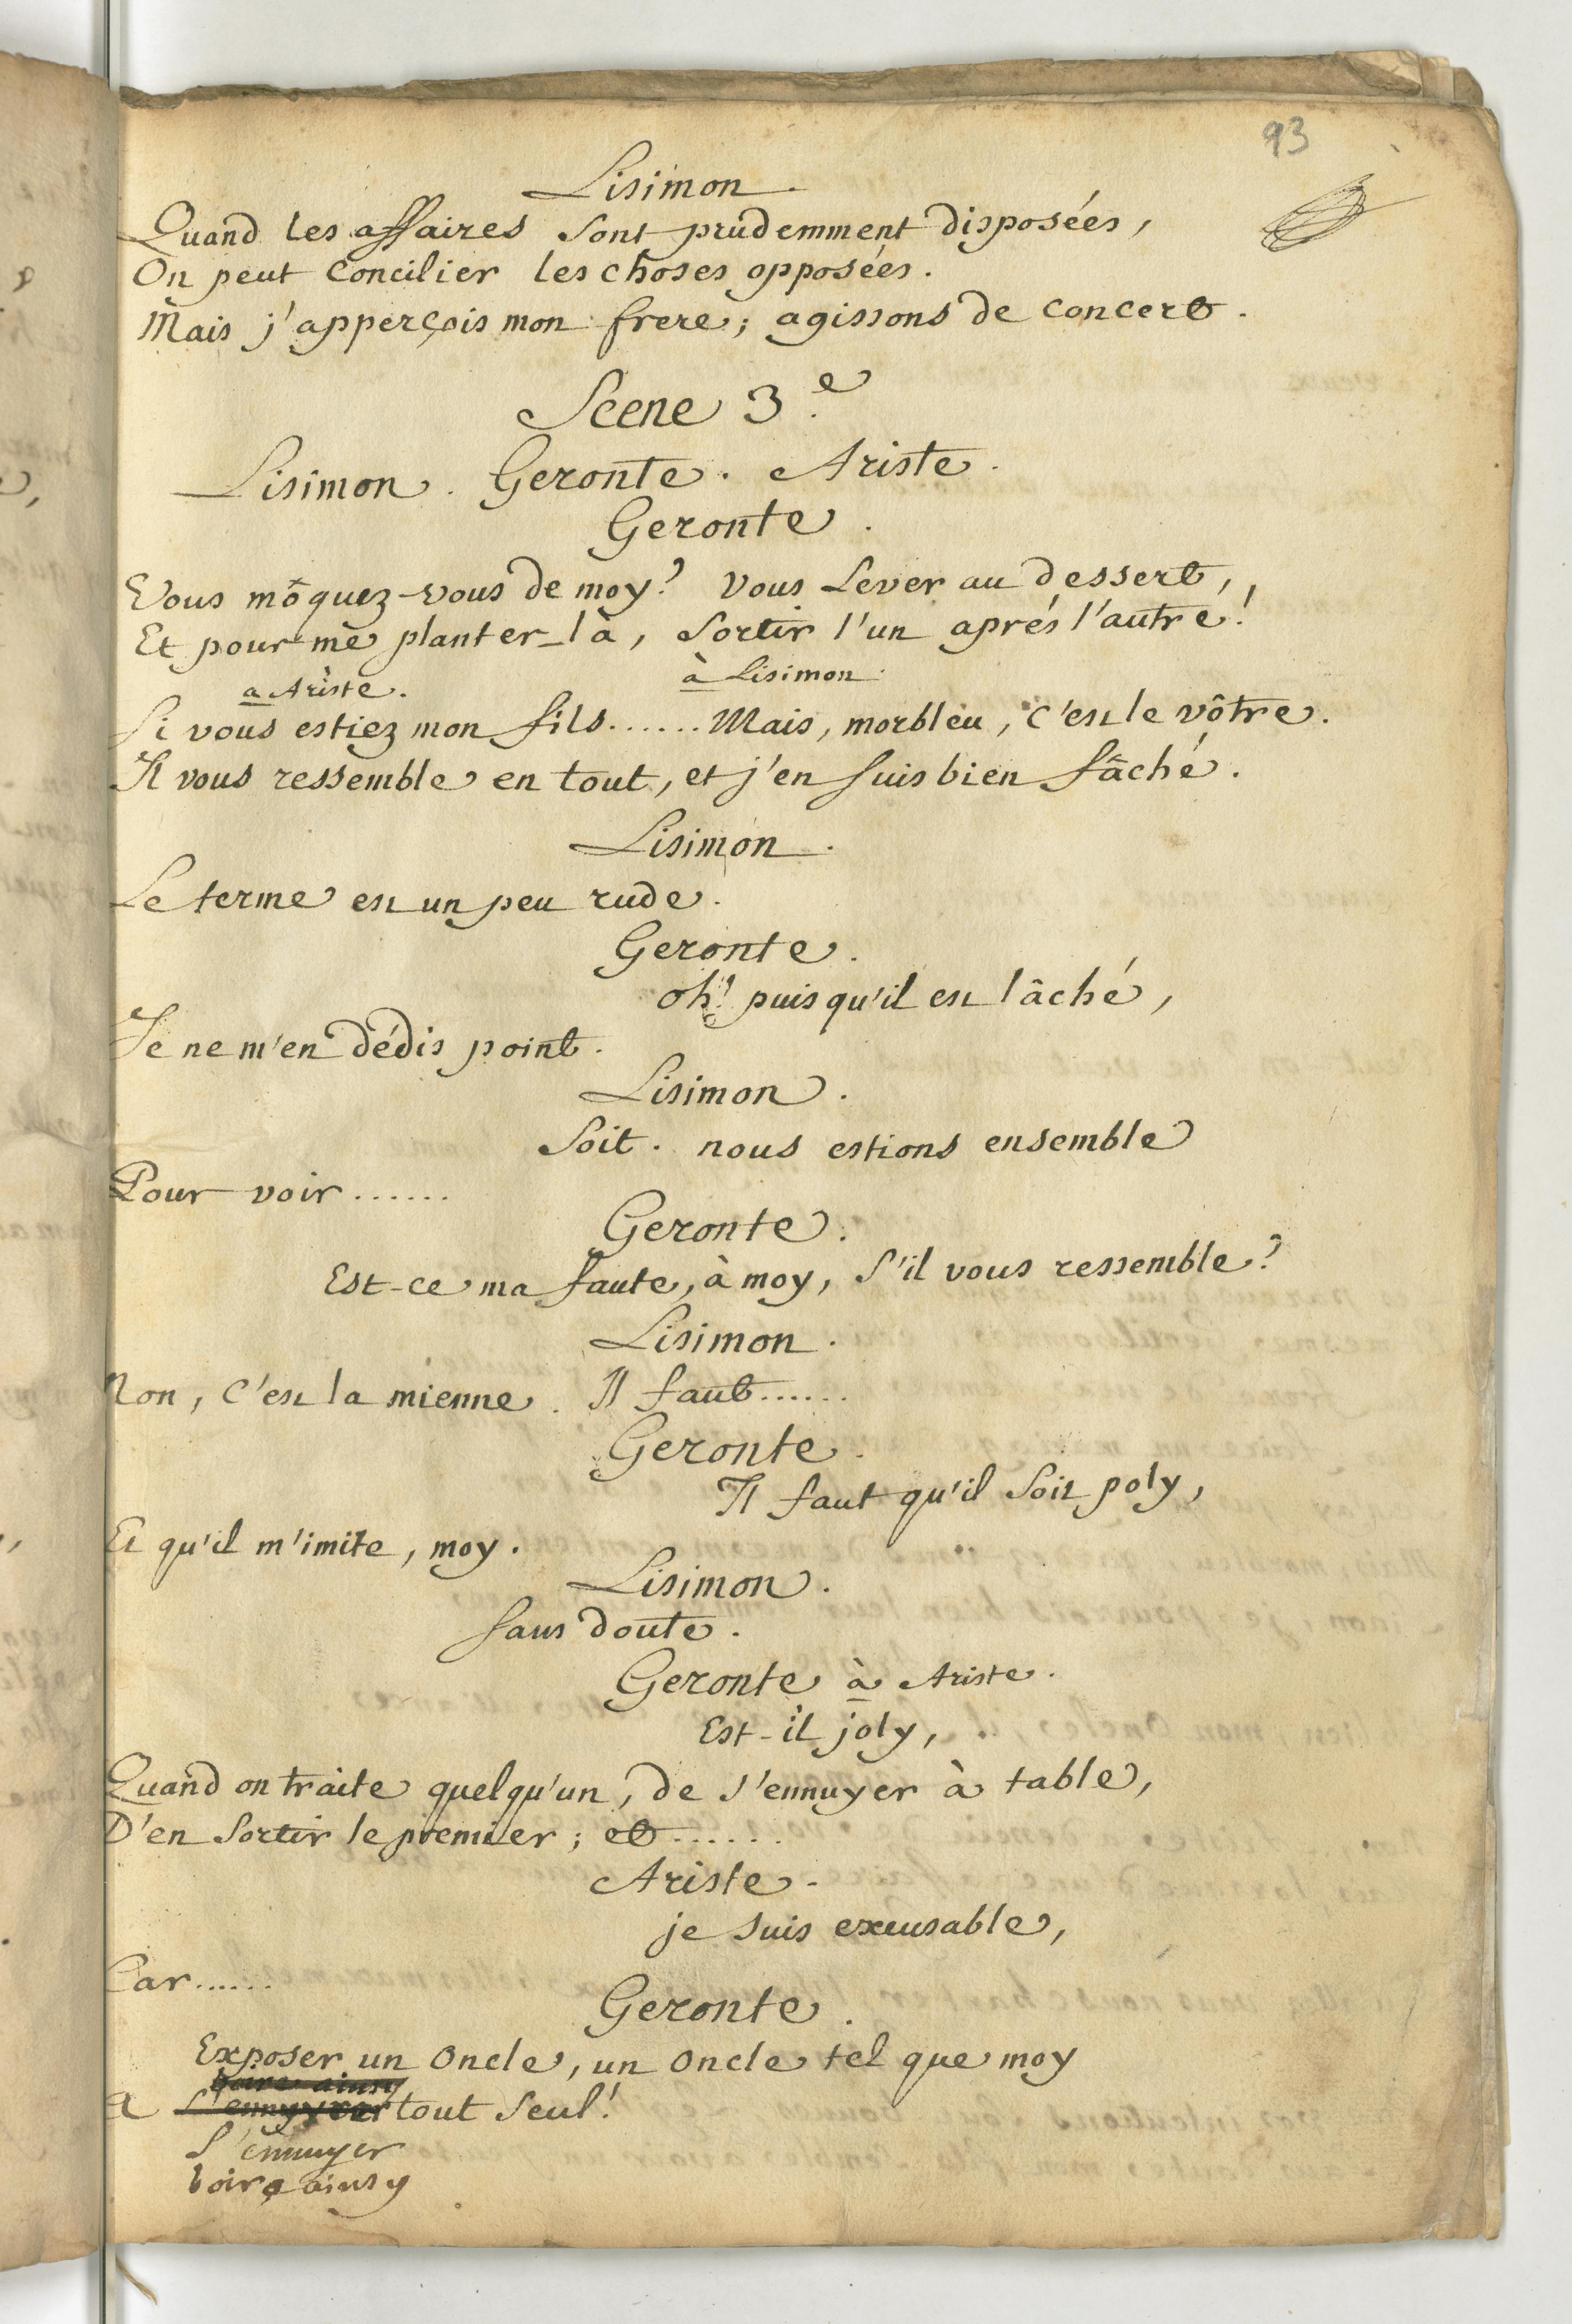 93
Lisimon.
Quand les affaires sont prudemment disposées,
On peut concilier les choses opposées.
Mais j'apperçois mon frere; agissons de concert.
Scene 3.e
Lisimon. Geronte. Ariste.
Geronte.
Vous môquez-vous de moy? Vous Lever au dessert,
Et pour me planter-là, sortir l'un aprés l'autre!
a Ariste. à Lisimon.
Si vous estiez mon fils...... Mais, morbleu, c'est le vôtre.
Il vous ressemble en tout, et j'en suis bien fâché.
Lisimon.
Le terme est un peu rude.
Geronte.
oh! puis qu'il est lâché,
Je ne m'en dédis point.
Lisimon.
Soit. nous estions ensemble
Pour voir......
Geronte.
Est-ce ma faute, à moy, s'il vous ressemble?
Lisimon.
Non, c'est la mienne. Il faut......
Geronte.
Il faut qu'il soit poly,
Et qu'il m'imite, moy.
Lisimon.
Sans doute.
Geronte à Ariste.
Est-il joly,
Quand on traite quelqu'un, de s'ennuyer à table,
D'en sortir le premier; et......
Ariste.
je suis excusable,
Car......
Geronte.
Exposer un Oncle, un Oncle tel que moy
boire ainsy
A s'ennyvrer tout seul!
S'ennuyer
boire ainsy